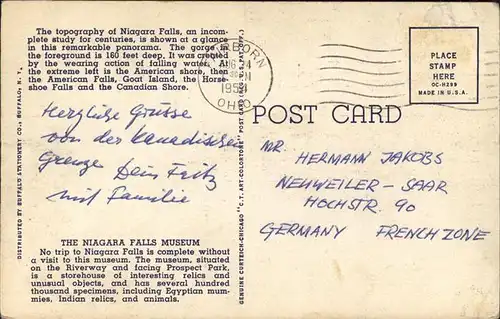 The topography of Niagara Falls, an incom-
plete study for centuries, is shown at a glance
in this remarkable panorama. The gorge in
the foreground is 160 feet deep. It was created
by the wearing action of falling water. At
the extreme left is the American shore, then
the American Falls, Goat Island, the Horse-
shoe Falls and the Canadian Shore.
Herzliche Grüsse
von der kanadischen
Grenze Dein Fritz
mit Familie
THE NIAGARA FALLS MUSEUM
No trip to Niagara Falls is complete without
a visit to this museum. The museum, situated
on the Riverway and facing Prospect Park,
is a storehouse of interesting relics and
unusual objects, and has several hundred
thousand specimens, including Egyptian mum-
mies, Indian relics, and animals.
DISTRIBUTED BY BUFFALO STATIONERY CO., BUFFALO, N. Y.
GENUINE CURTEICH-CHICAGO "C.T. ART-COLORTONE" POST CARD
BORN
OHIO
POST CARD
PLACE
STAMP
HERE
OC-H299
MADE IN U.S.A.
MR.
HERMANN JAKOBS
NEUWEILER - SAAR
HOCHSTR. 90
GERMANY FRENCH ZONE